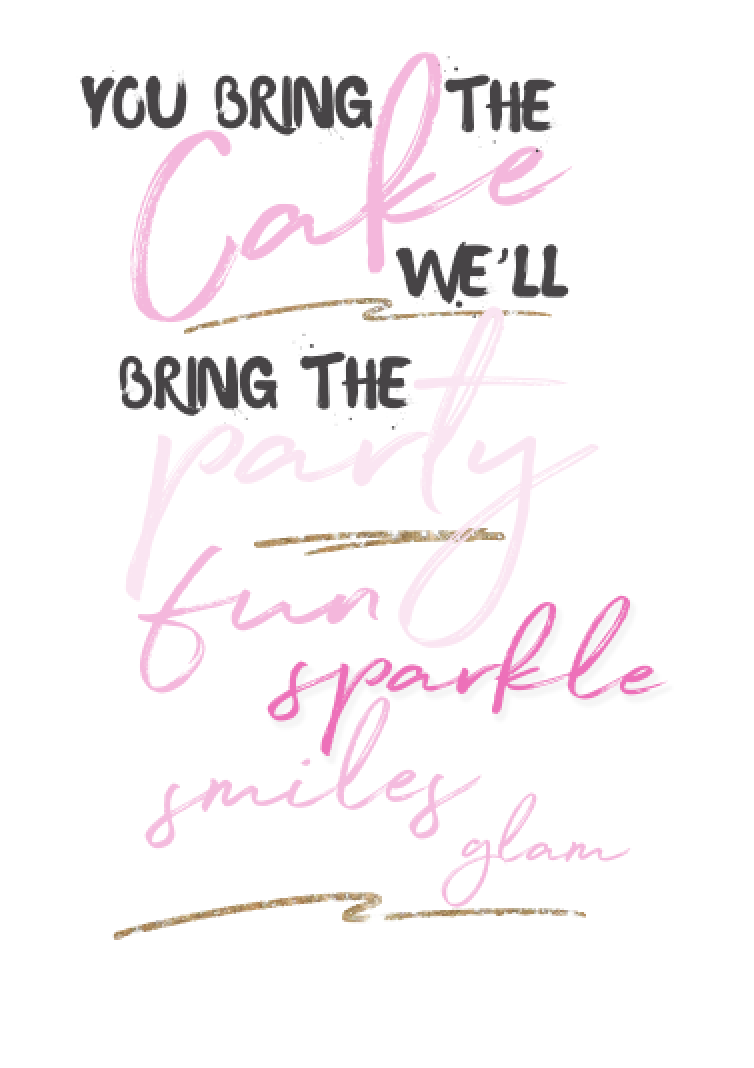 YOU BRING THE
Cake
WE'LL
BRING THE
party
fun
sparkle
smiles
glam